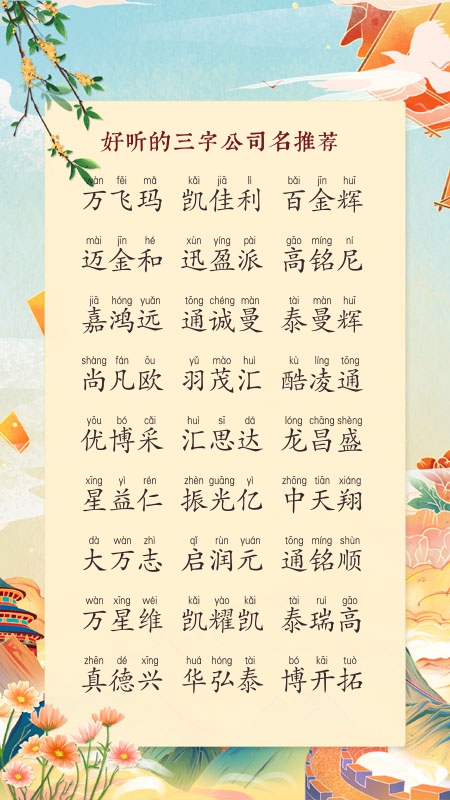 好听的三字公司名推荐
wàn fēi mǎ kǎi jiā lì bǎi jīn huī
万飞玛 凯佳利 百金辉
mài jīn hé xùn yíng pài gāo míng ní
迈金和 迅盈派 高铭尼
jiā hóng yuǎn tōng chéng màn tài màn huī
嘉鸿远 通诚曼 泰曼辉
shàng fán ōu yǔ mào huì kù líng tōng
尚凡欧 羽茂汇 酷凌通
yōu bó cǎi huì sī dá lóng chāng shèng
优博采 汇思达 龙昌盛
xīng yì rén zhèn guāng yì zhōng tiān xiáng
星益仁 振光亿 中天翔
dà wàn zhì qǐ rùn yuán tōng míng shùn
大万志 启润元 通铭顺
wàn xīng wéi kǎi yào kǎi tài ruì gāo
万星维 凯耀凯 泰瑞高
zhēn dé xīng huá hóng tài bó kāi tuò
真德兴 华弘泰 博开拓